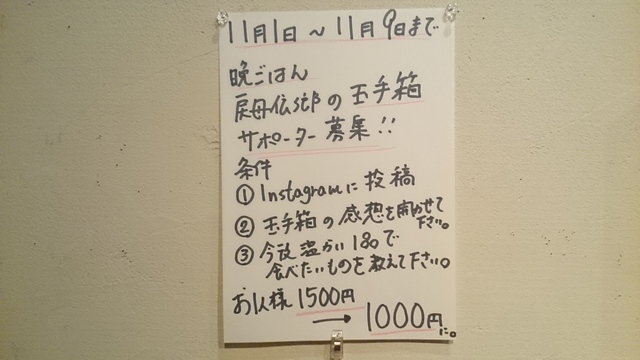 11月1日～11月9日まで
晩ごはん
の玉手箱
サポーター募集!!
条件
① Instagramに投稿
② 玉手箱の感想を聞かせて
下さい。
③ 今後温かい1品で
食べたいものを教えて下さい。
お1人様1500円
→1000円に。